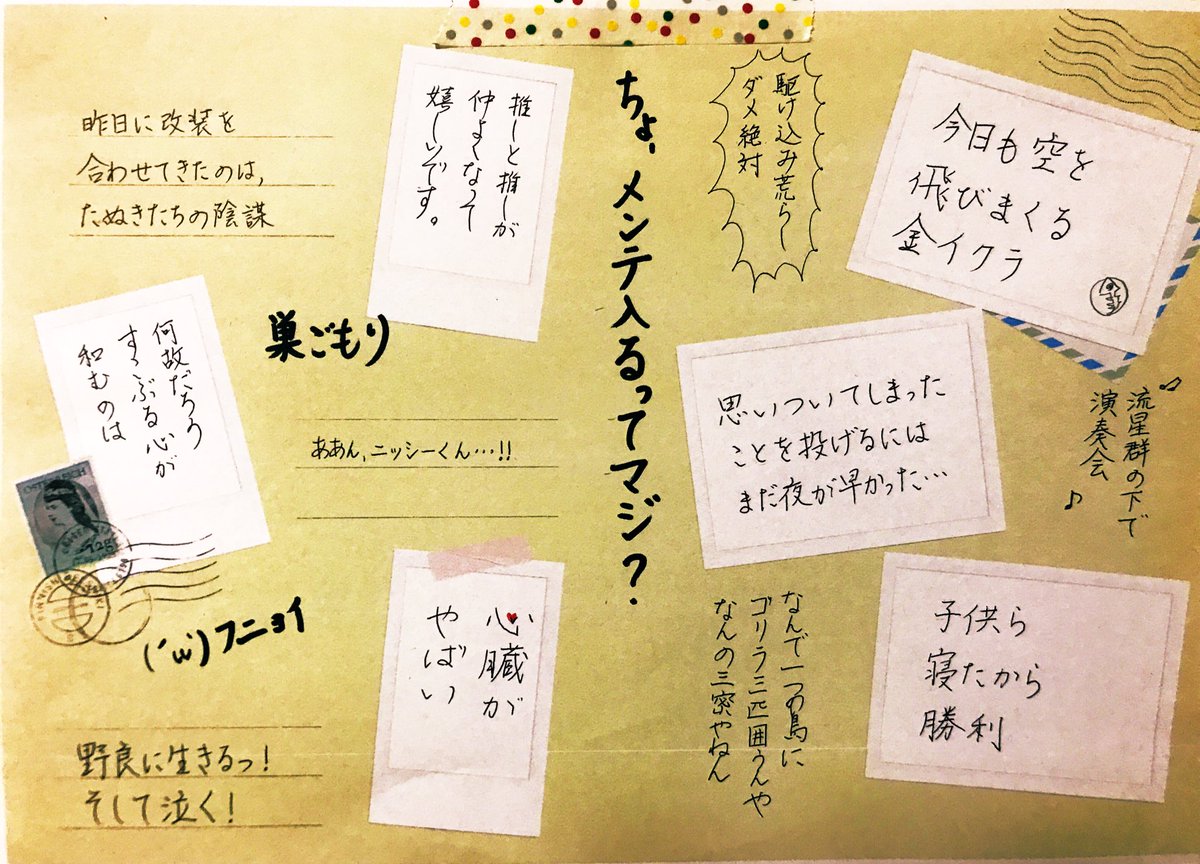 昨日に改装を
合わせてきたのは、
たぬきたちの陰謀
推しと推しが
仲よくなって
嬉しいです。
ちょ、メンテ入るってマジ?
駆け込み荒らし
ダメ絶対
今日も空を
飛びまくる
金イクラ
何故だろう
すさぶる心が
和むのは
巣ごもり
ああん、ニッシーくん…!!
思いついてしまった
ことを投げるには
まだ夜が早かった…
♪流星群の下で
演奏会♪
(´ω`)フニョイ
心臓が
やばい
なんで一つの島に
ゴリラ三匹囲うんや
なんの三密やねん
子供ら
寝たから
勝利
野良に生きるっ!
そして泣く!